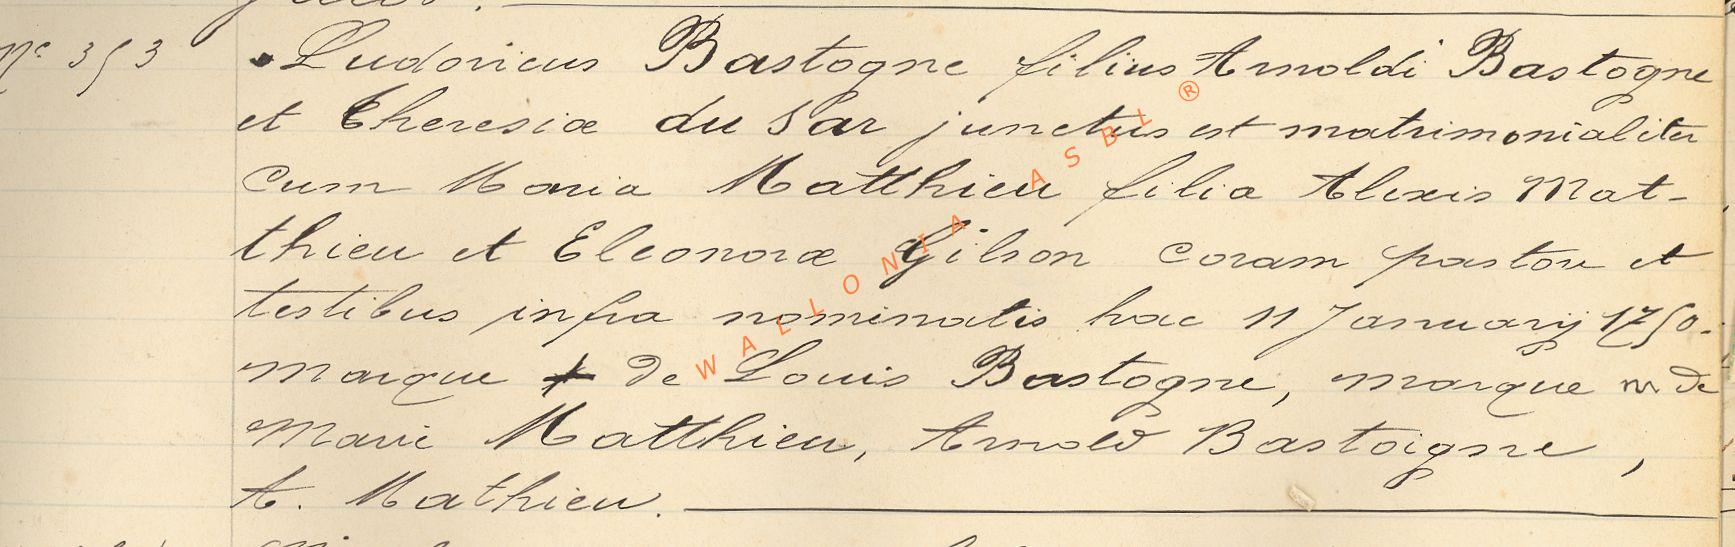 Nº 353
Ludovicus Bastogne filius Arnoldi Bastogne
et Theresiæ du Sar junctus est matrimonialiter
cum Maria Matthieu filia Alexis Mat-
thieu et Eleonoræ Gilson coram pastore et
testibus infra nominatis hac 11 January 1750.
marque + de Louis Bastogne, marque m de
Marie Matthieu, Arnold Bastoigne,
A. Mathieu.
WALLONIA ASBL ®